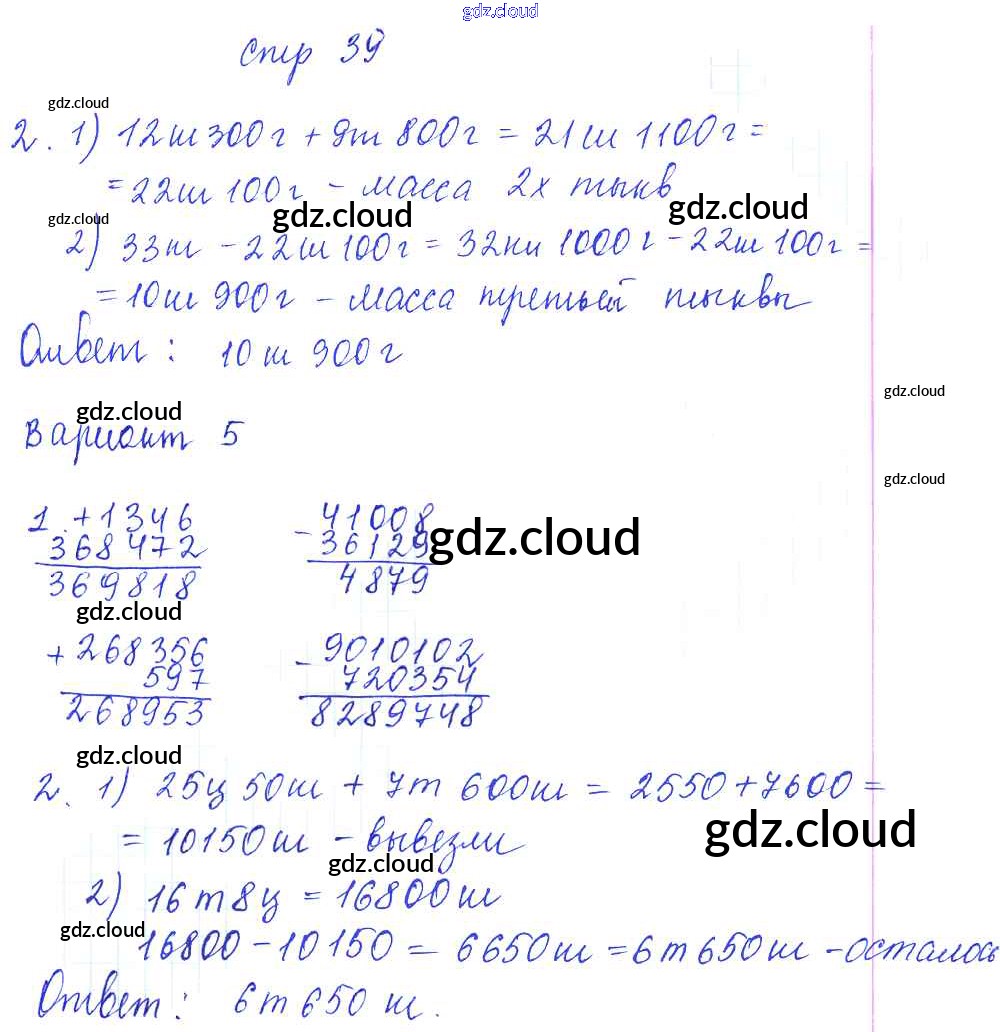 gdz.cloud
стр 39
gdz.cloud
2. 1) 12кг 300г + 9кг 800г = 21кг 1100г =
= 22кг 100г - масса 2х тыкв
gdz.cloud gdz.cloud gdz.cloud
2) 33кг - 22кг 100г = 32кг 1000г - 22кг 100г =
= 10кг 900г - масса третьей тыквы
Ответ: 10кг 900г
gdz.cloud gdz.cloud
Вариант 5
gdz.cloud
1. + 1346 - 41008
368472 36129 gdz.cloud
369818 4879
gdz.cloud
+ 268356 - 9010102
597 720354
268953 8289748
gdz.cloud
2. 1) 25ц 50кг + 7т 600кг = 2550+7600 =
gdz.cloud
= 10150кг - вывезли
gdz.cloud
2) 16т 8ц = 16800кг
gdz.cloud
16800 - 10150 = 6650кг = 6т 650кг - осталось
Ответ: 6т 650 кг.